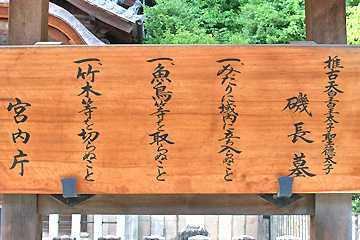 推古天皇皇太子聖徳太子
磯長墓
一、みだりに域内に立ち入らぬこと
一、魚鳥等を取らぬこと
一、竹木等を切らぬこと
宮内庁